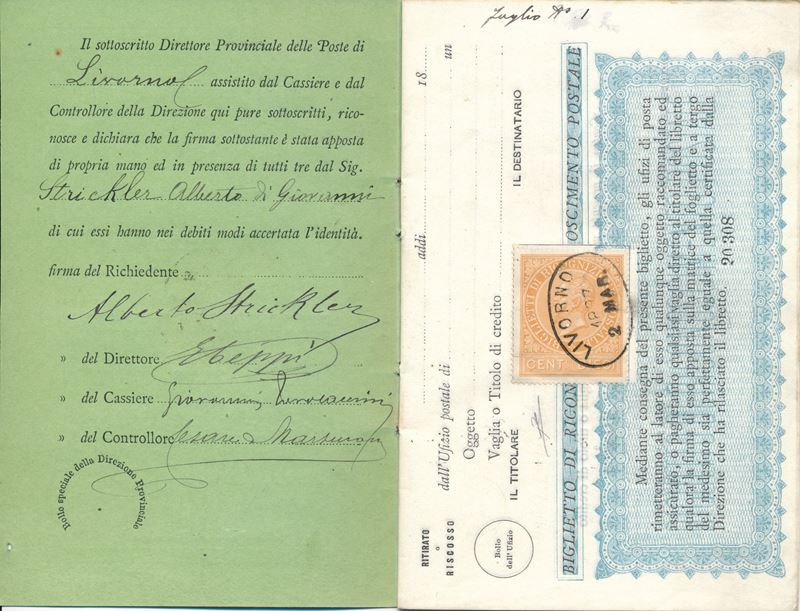 Il sottoscritto Direttore Provinciale delle Poste di
Livorno assistito dal Cassiere e dal
Controllore della Direzione qui pure sottoscritti, rico-
nosce e dichiara che la firma sottostante è stata apposta
di propria mano ed in presenza di tutti tre dal Sig.
Strickler Alberto di Giovanni
di cui essi hanno nei debiti modi accertata l'identità.
firma del Richiedente
Alberto Strickler
» del Direttore
» del Cassiere Giovanni
» del Controllore Cesare
Bollo speciale della Direzione Provinciale
RITIRATO
o
RISCOSSO
dall'Ufizio postale di addì 18 un
Oggetto
Vaglia o Titolo di credito
IL TITOLARE IL DESTINATARIO
Bollo
dell'Ufizio
BIGLIETTO DI RICOGNOSCIMENTO POSTALE
BIGLIETTI DI RICOGNIZ
CENT
LIVORNO
2 MAR.
Mediante consegna del presente biglietto, gli ufizi di posta
rimetteranno al latore di esso qualunque oggetto raccomandato ed
assicurato, o pagheranno qualsiasi vaglia diretto al titolare del libretto
qualora la firma di esso apposta sulla matrice del foglietto e a tergo
del medesimo sia perfettamente eguale a quella certificata dalla
Direzione che ha rilasciato il libretto. 20308